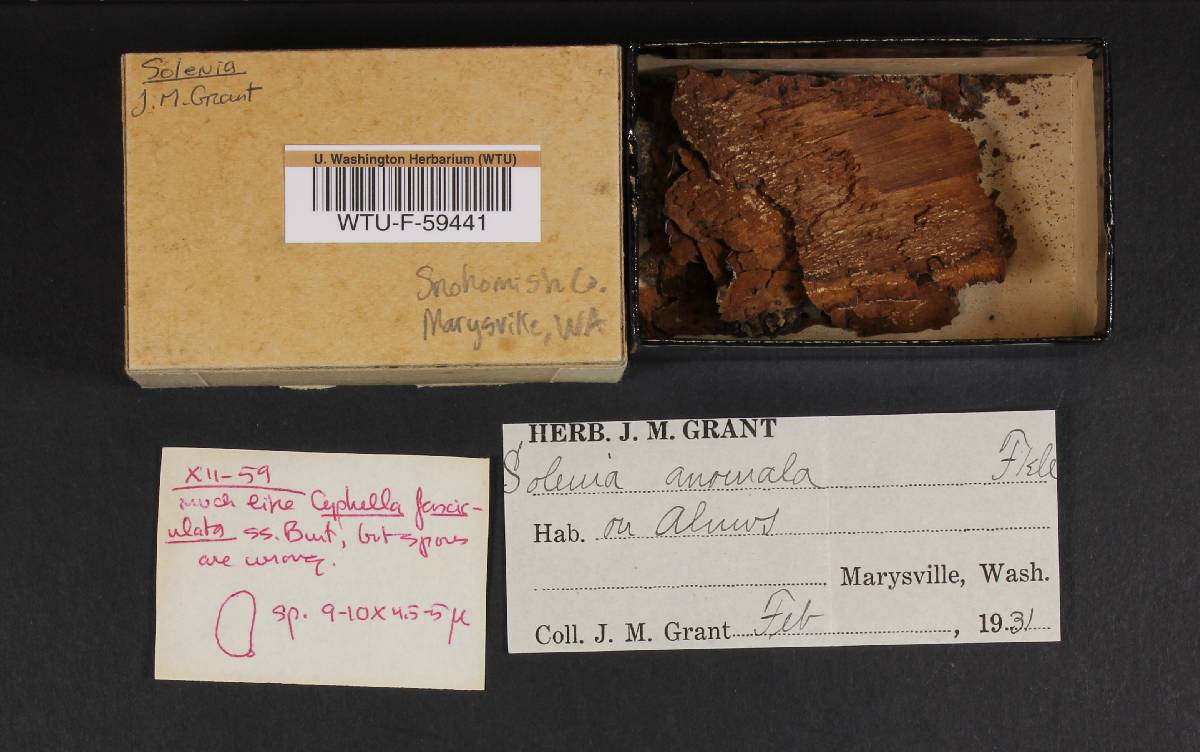 Solenia
J.M. Grant
U. Washington Herbarium (WTU)
WTU-F-59441
Snohomish Co.
Marysville, WA
XII-59
much like Cyphella fascic-
ulata ss. Burt, but spores
are wrong.
sp. 9-10 x 4.5-5 µ
HERB. J. M. GRANT
Solenia anomala Fkle
Hab. on Alnus
Marysville, Wash.
Coll. J. M. Grant Feb , 1931